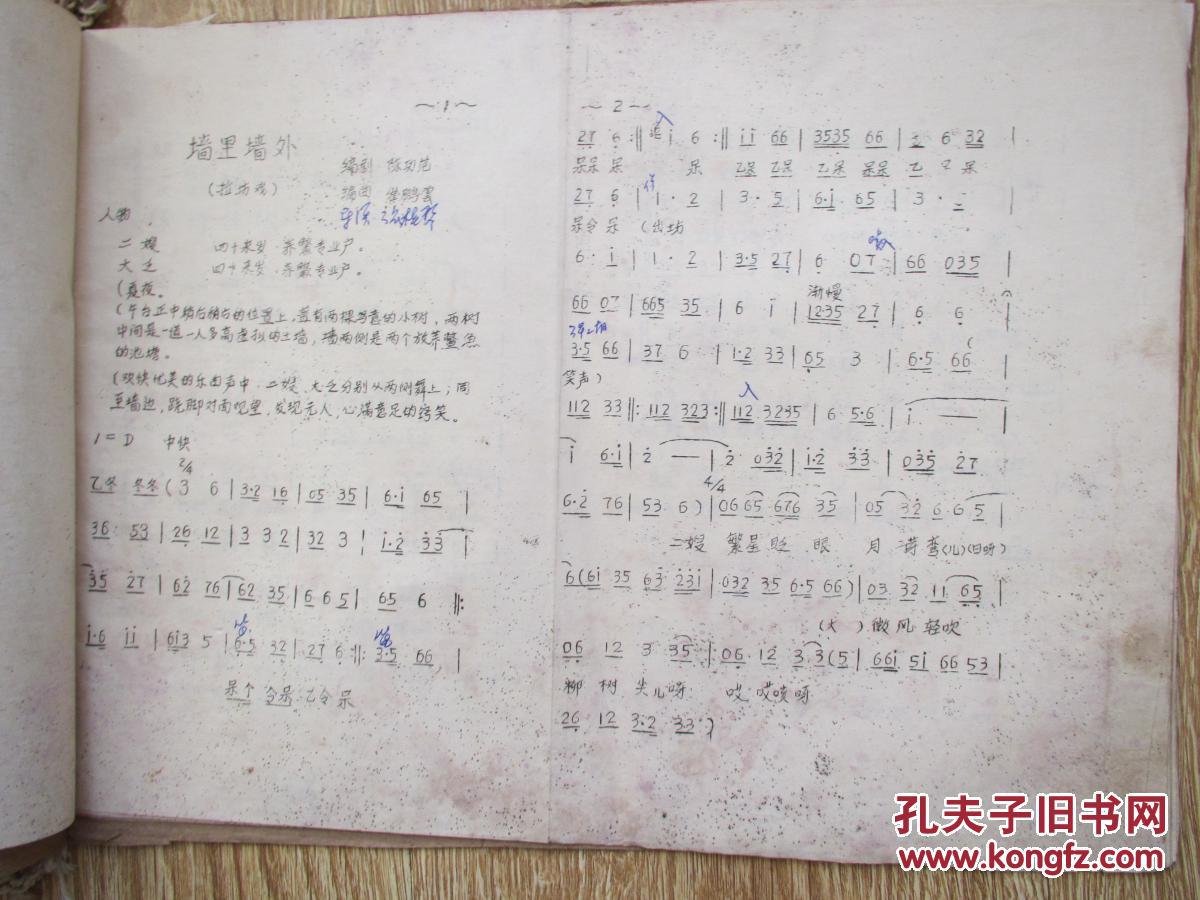 ～1～
墙里墙外
编剧
(拉场戏) 编曲
导演
人物
二嫂 四十来岁·养鳖专业户。
大乏 四十来岁·养鳖专业户。
(夏夜。
(平台正中稍后稍右的位置上，置有两棵写意的小树，两树
中间是一道一人多高虚拟的土墙，墙两侧是两个放养鳖鱼
的池塘。
(欢快优美的乐曲声中·二嫂、大乏分别从两侧舞上；同
至墙边，跷脚对面眺望，发现无人，心满意足的窃笑。
1=D 中快
2/4
乙冬 冬冬 (3 6 | 3·2 16 | 05 35 | 6·i 65 |
36 53 | 26 12 | 3 3 2 | 32 3 | i·2 33 i
35 27 | 62 76 | 62 35 | 6 6 5 | 65 6 ‖:
i·6 i i | 6i3 5 | 6·5 32 | 27 6 :‖: 3·5 66 |
呆个 令呆 乙令 呆
～2～
入
27 6 :‖ i 6 :‖ ii 66 | 3535 66 | 6 32 |
呆呆 呆 呆 乙呆 乙呆 乙呆 呆呆 乙 呆
27 6 | 1·2 | 3·5 | 6·i 65 | 3·
呆令 呆 (出场
6·i | 1·2 | 3·5 27 | 6 07 | 66 035 |
渐慢
66 07 | 665 35 | 6 i | 1235 27 | 6 6 |
3·5 66 | 37 6 | 1·2 33 | 65 3 | 6·5 66 (
笑声)
入
112 33 ‖: 112 323 :‖ 112 3235 | 6 5·6 | i — |
i 6·i | 2 — | 2· 032 | i·2 33 | 035 27 |
4/4
6·2 76 | 53 6) | 06 65 676 35 | 05 32 6·6 5 |
二嫂 繁星眨 眼 月 弯(儿)(日呀)
6(6i 35 63 231 | 032 35 6·5 66) | 03 32 11 65 |
(大 ) 微风 轻吹
06 12 3 35 | 06·12 3 3(5 | 66i 5i 66 53 |
柳 树 尖儿呀 哎 哎唉呀
26 12 3·2 33)
孔夫子旧书网
www.kongfz.com